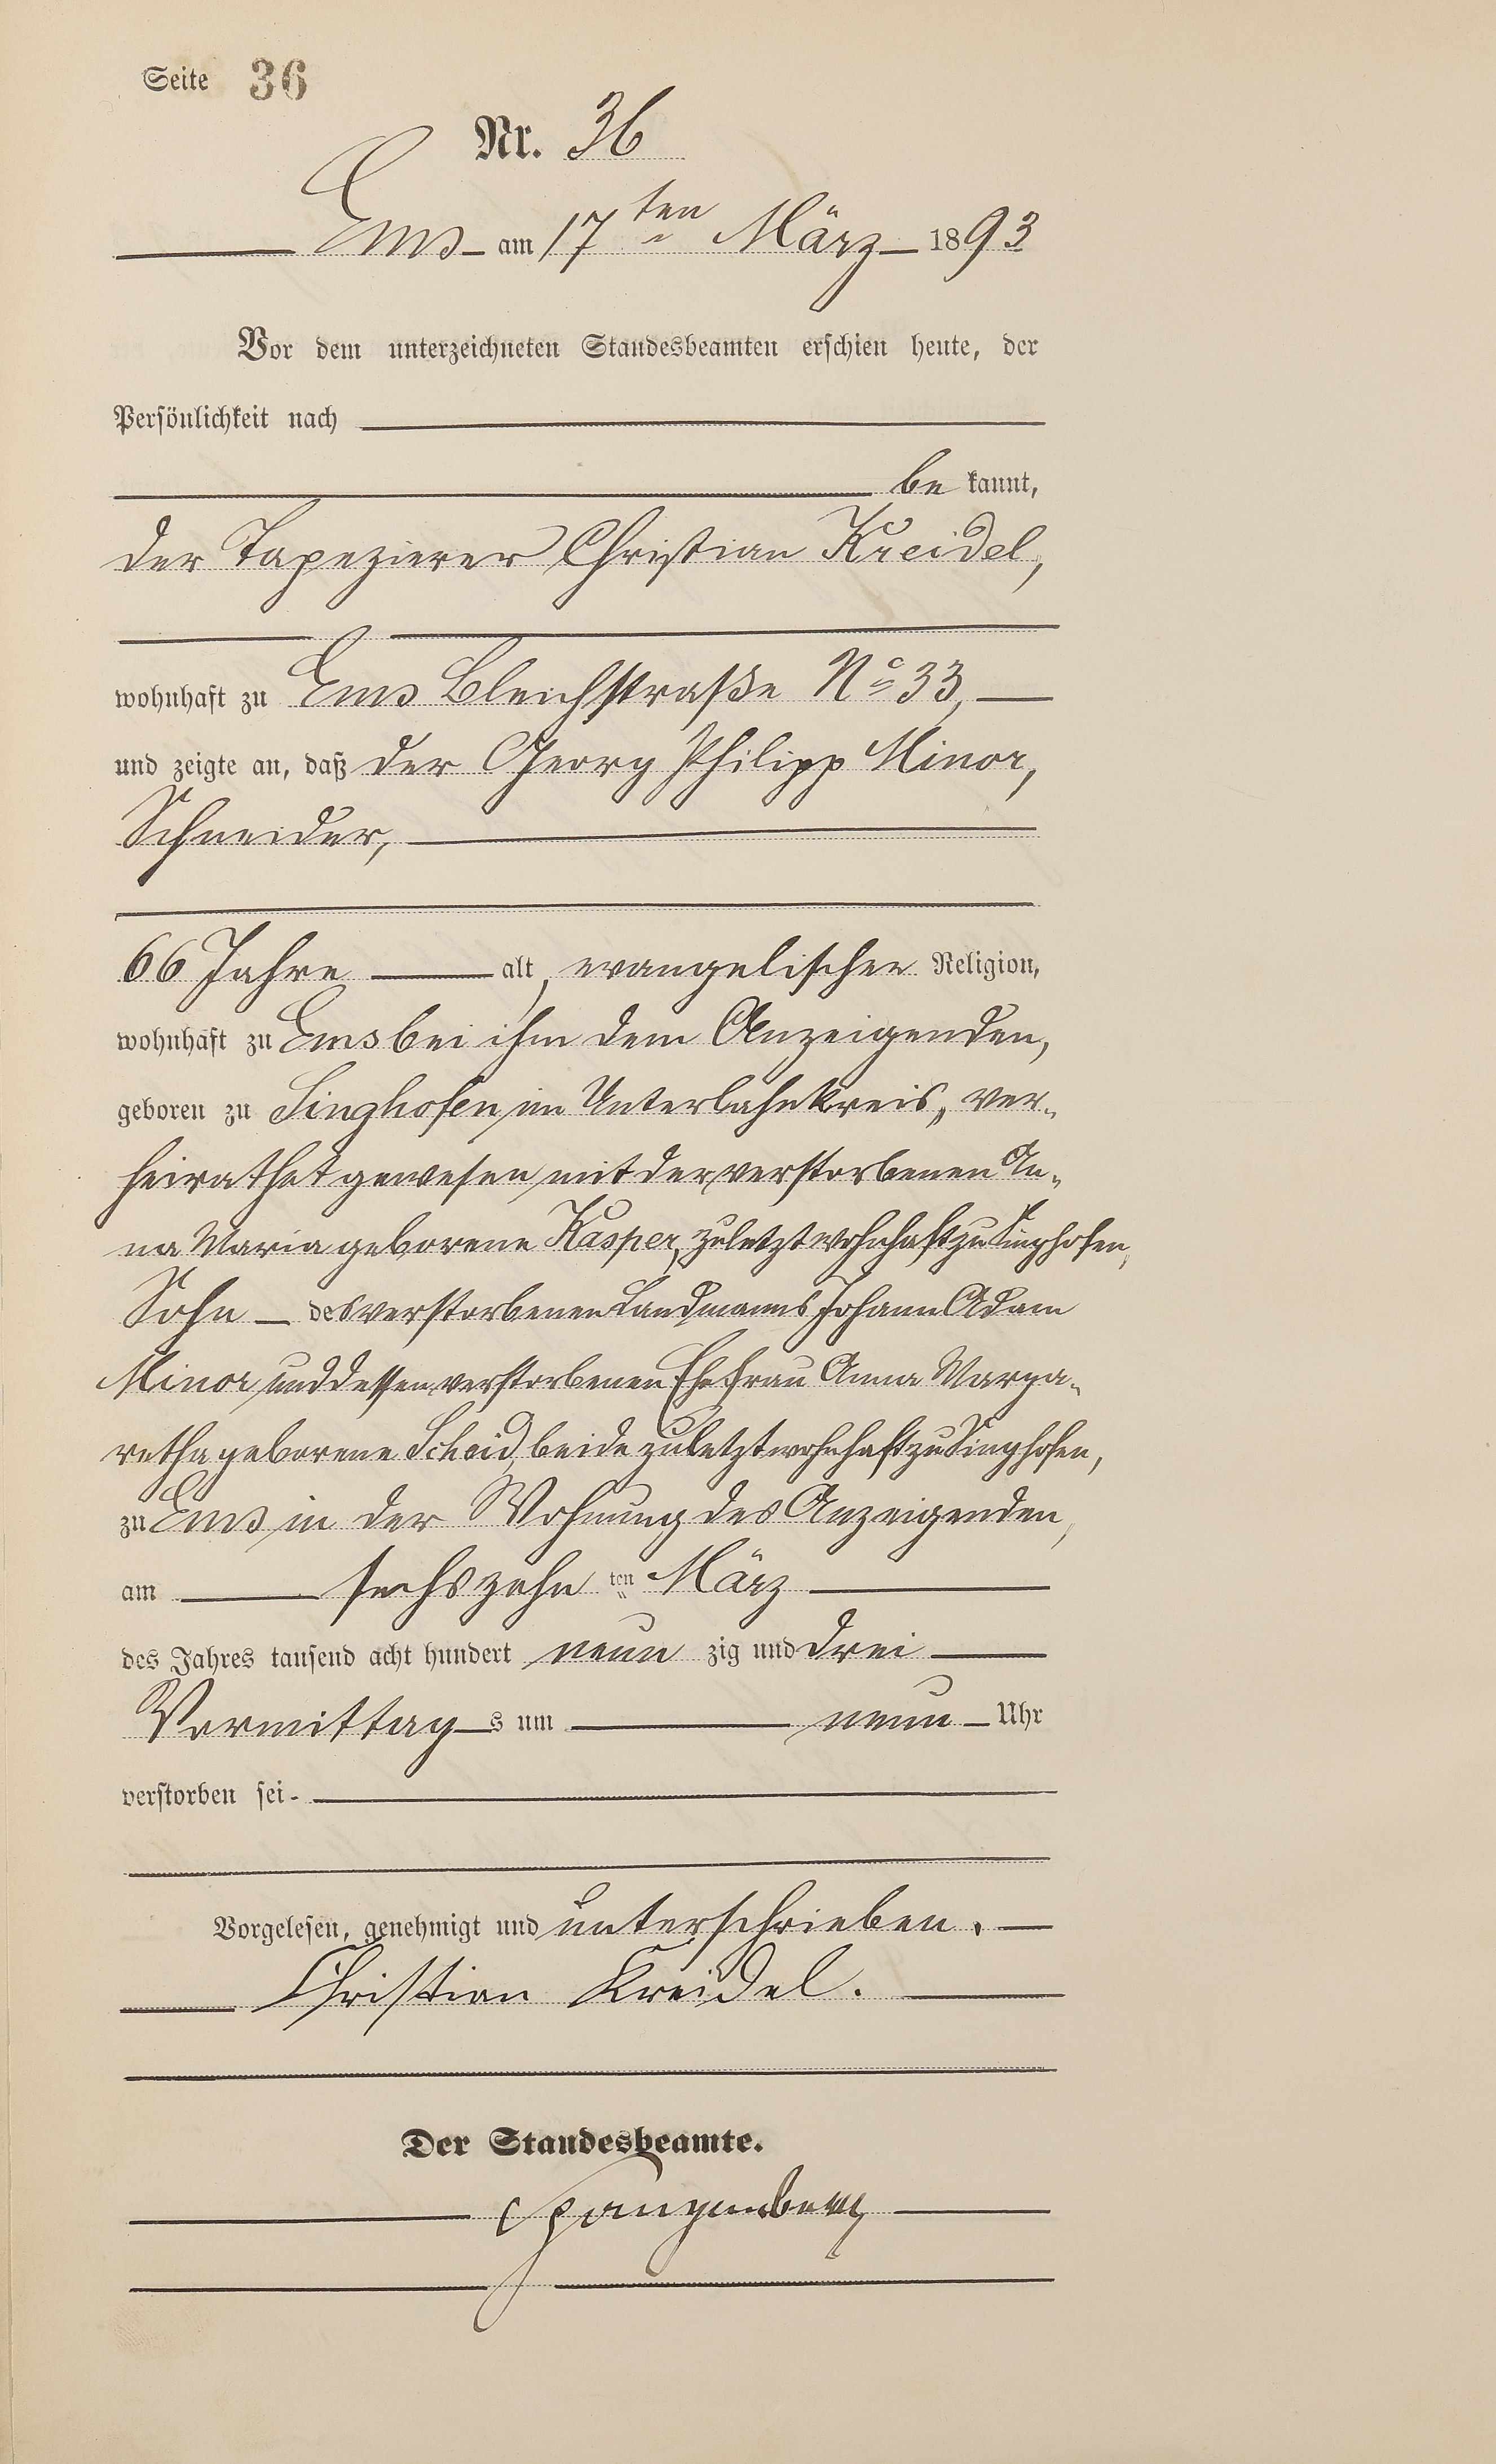 Seite 36
Nr. 36
Ems am 17ten März 1893
Vor dem unterzeichneten Standesbeamten erschien heute, der
Persönlichkeit nach
be kannt,
der Tapezierer Christian Kreidel,
wohnhaft zu Ems Bleichstraße No 33,
und zeigte an, daß der Georg Philipp Minor,
Schneider,
66 Jahre alt, evangelischer Religion,
wohnhaft zu Ems bei ihm dem Anzeigenden,
geboren zu Singhofen im Unterlahnkreis, ver-
heirathet gewesen mit der verstorbenen An-
na Maria geborene Kasper, zuletzt wohnhaft zu Singhofen,
Sohn des verstorbenen Landmanns Johann Adam
Minor und dessen verstorbenen Ehefrau Anna Marga-
retha geborene Scheid, beide zuletzt wohnhaft zu Singhofen,
zu Ems in der Wohnung des Anzeigenden,
am sechszehn ten März
des Jahres tausend acht hundert neun zig und drei
Vormittag s um neun Uhr
verstorben sei.
Vorgelesen, genehmigt und unterschrieben.
Christian Kreidel.
Der Standesbeamte.
Spangenberg